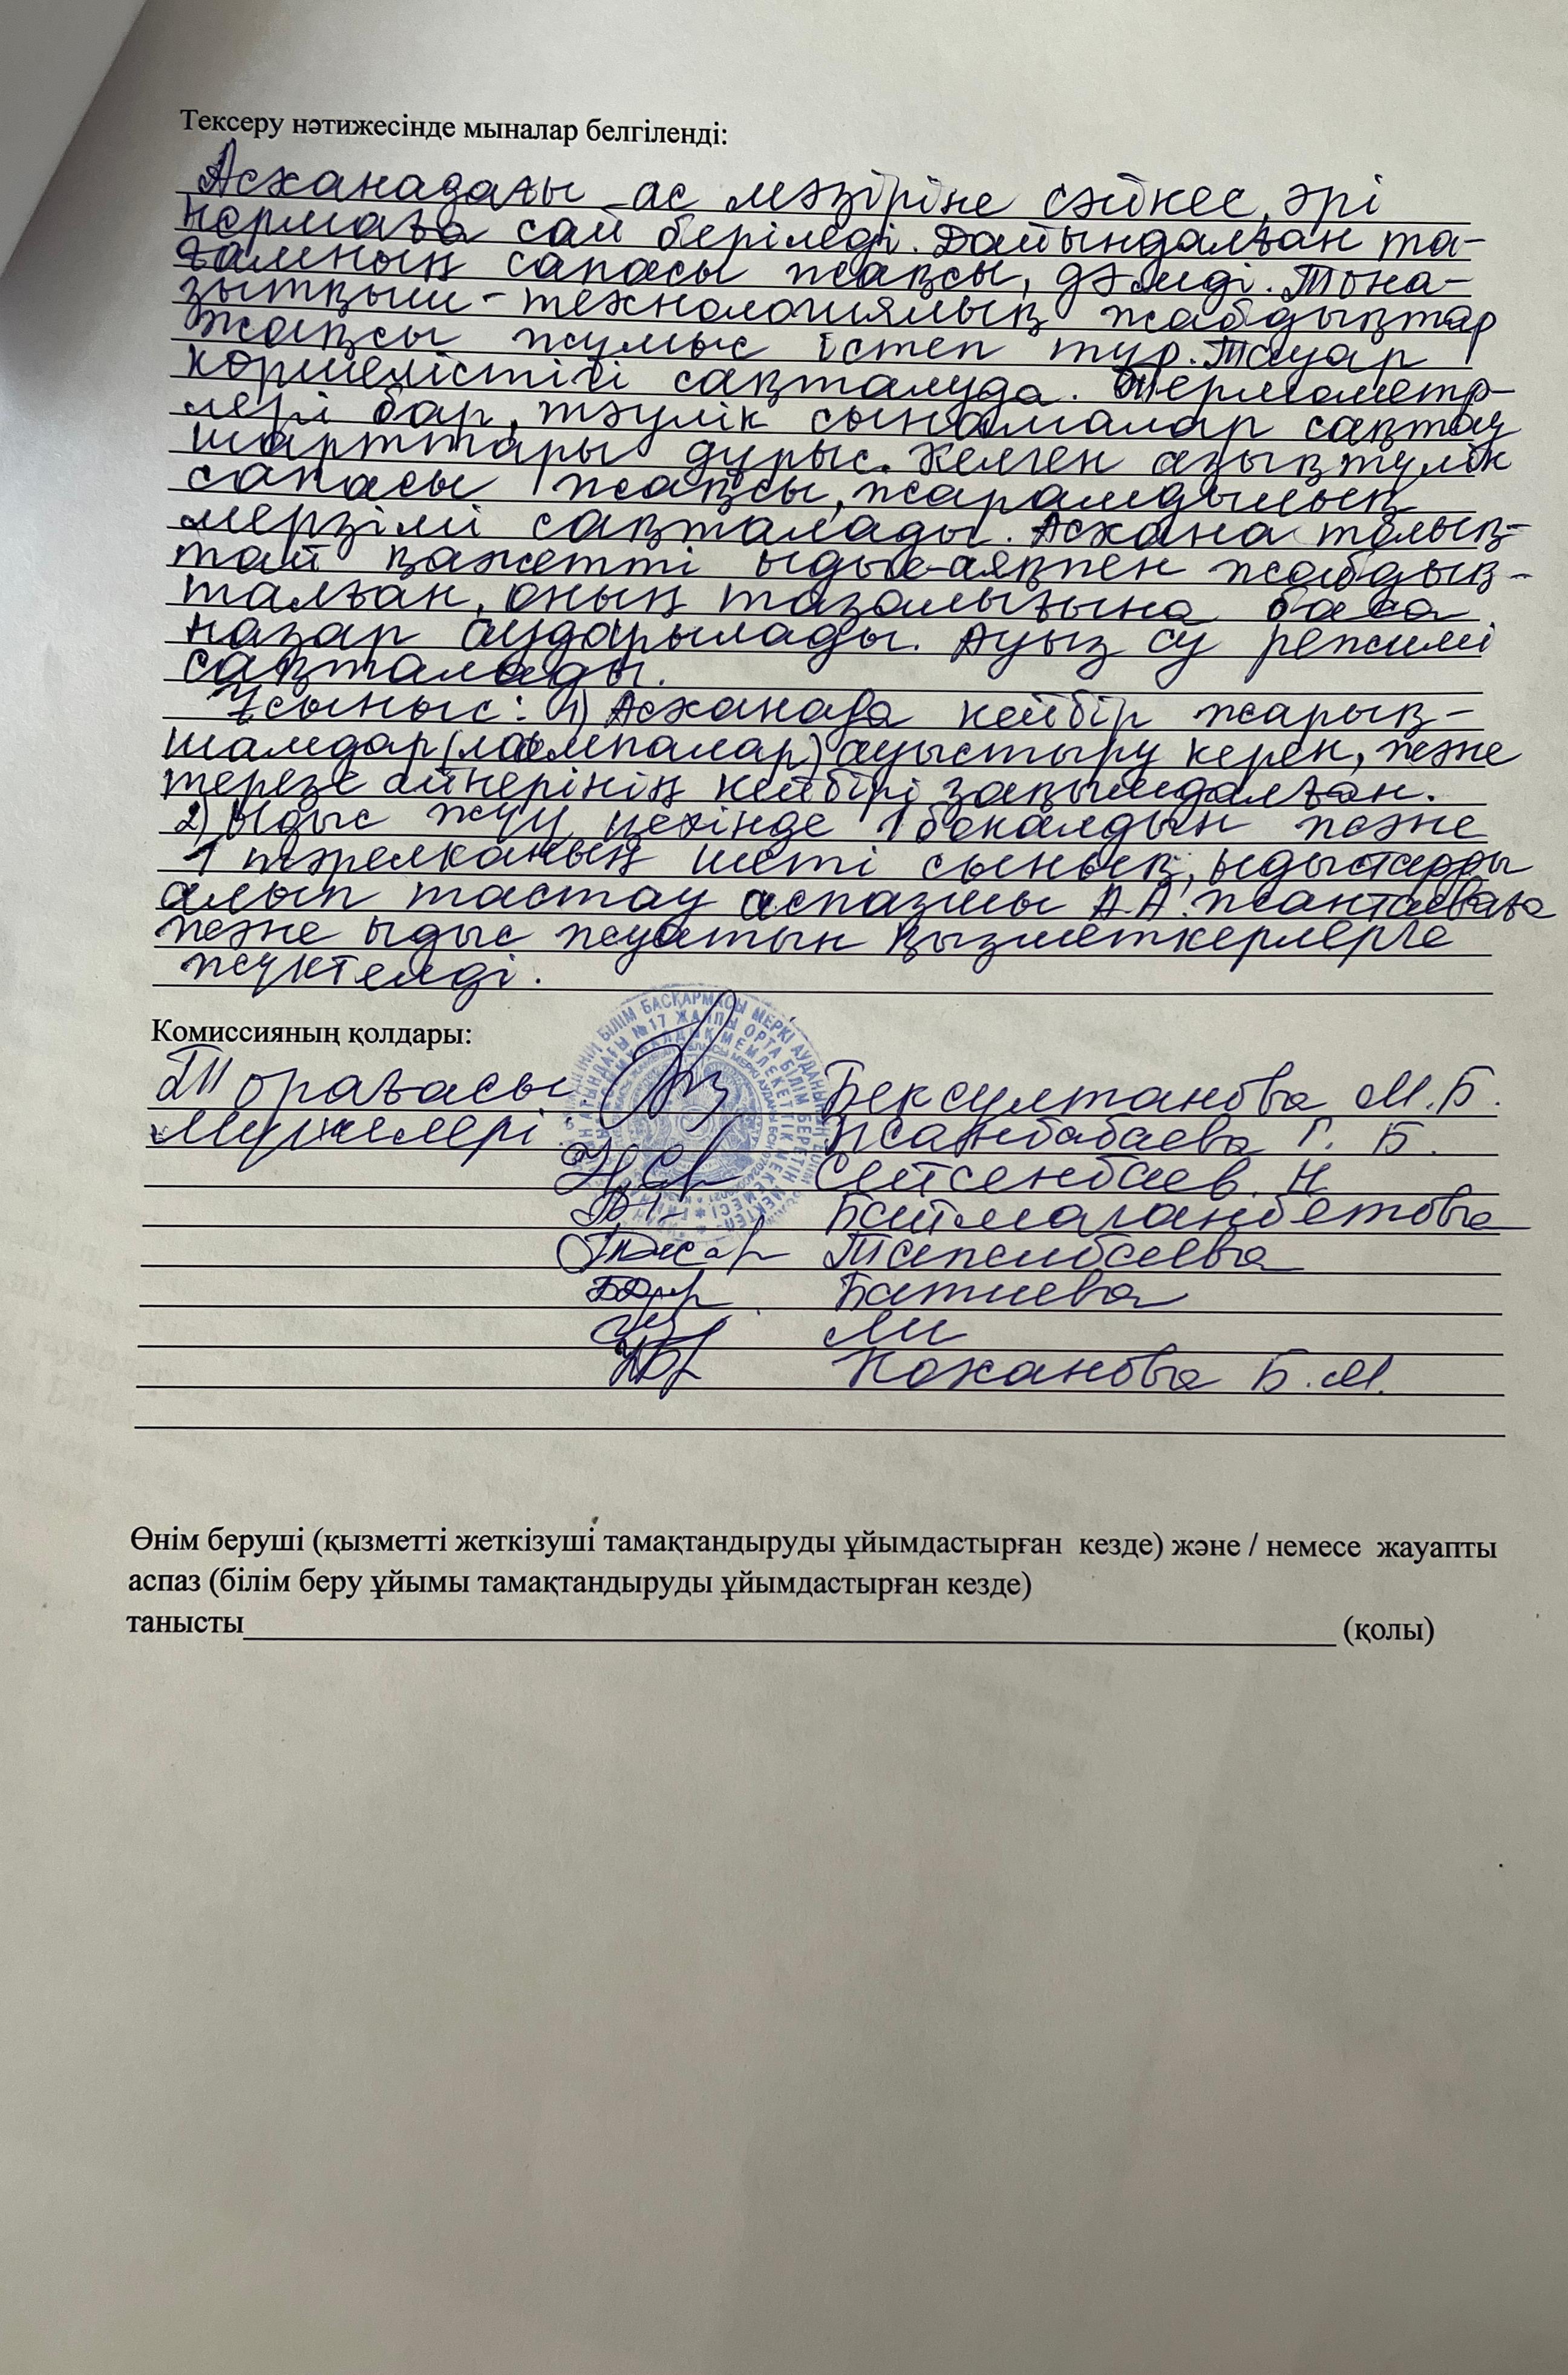 Тексеру нәтижесінде мыналар белгіленді:
Асханадағы ас мәзіріне сәйкес, әрі
нормаға сай беріледі. Дайындалған та-
ғамның сапасы жақсы, дәмді. Тоңа-
зытқыш-технологиялық жабдықтар
жақсы жұмыс істеп тұр. Тауар
көршілестігі сақталуда. Термометр-
лері бар, тәулік сынамалар сақтау
шарттары дұрыс. Келген азық түлік
сапасы жақсы, жарамдылық
мерзімі сақталады. Асхана толық-
тай қажетті ыдыс-аяқпен жабдық-
талған, оның тазалығына баса
назар аударылады. Ауыз су режимі
сақталады.
Ұсыныс: 1) Асханада кейбір жарық-
шамдар (лампалар) ауыстыру керек, және
терезе әйнерінің кейбірі зақымдалған.
2) Ыдыс жуу цехінде 1 бокалдың және
1 тәрелканың шеті сынық, ыдыстарды
алып тастау аспазшы А.А. Жантаеваға
және ыдыс жуатын қызметкерлерге
жүктелді.
Комиссияның қолдары:
Төрағасы Бексултанова М.Б.
Мүшелері Жанбабаева Г. Б.
Сейсенбаев. Н
Баймаганбетова
Тапсибаева
Батиева
Ли
Кожанова Б.М.
Өнім беруші (қызметті жеткізуші тамақтандыруды ұйымдастырған кезде) және / немесе жауапты
аспаз (білім беру ұйымы тамақтандыруды ұйымдастырған кезде)
танысты (қолы)